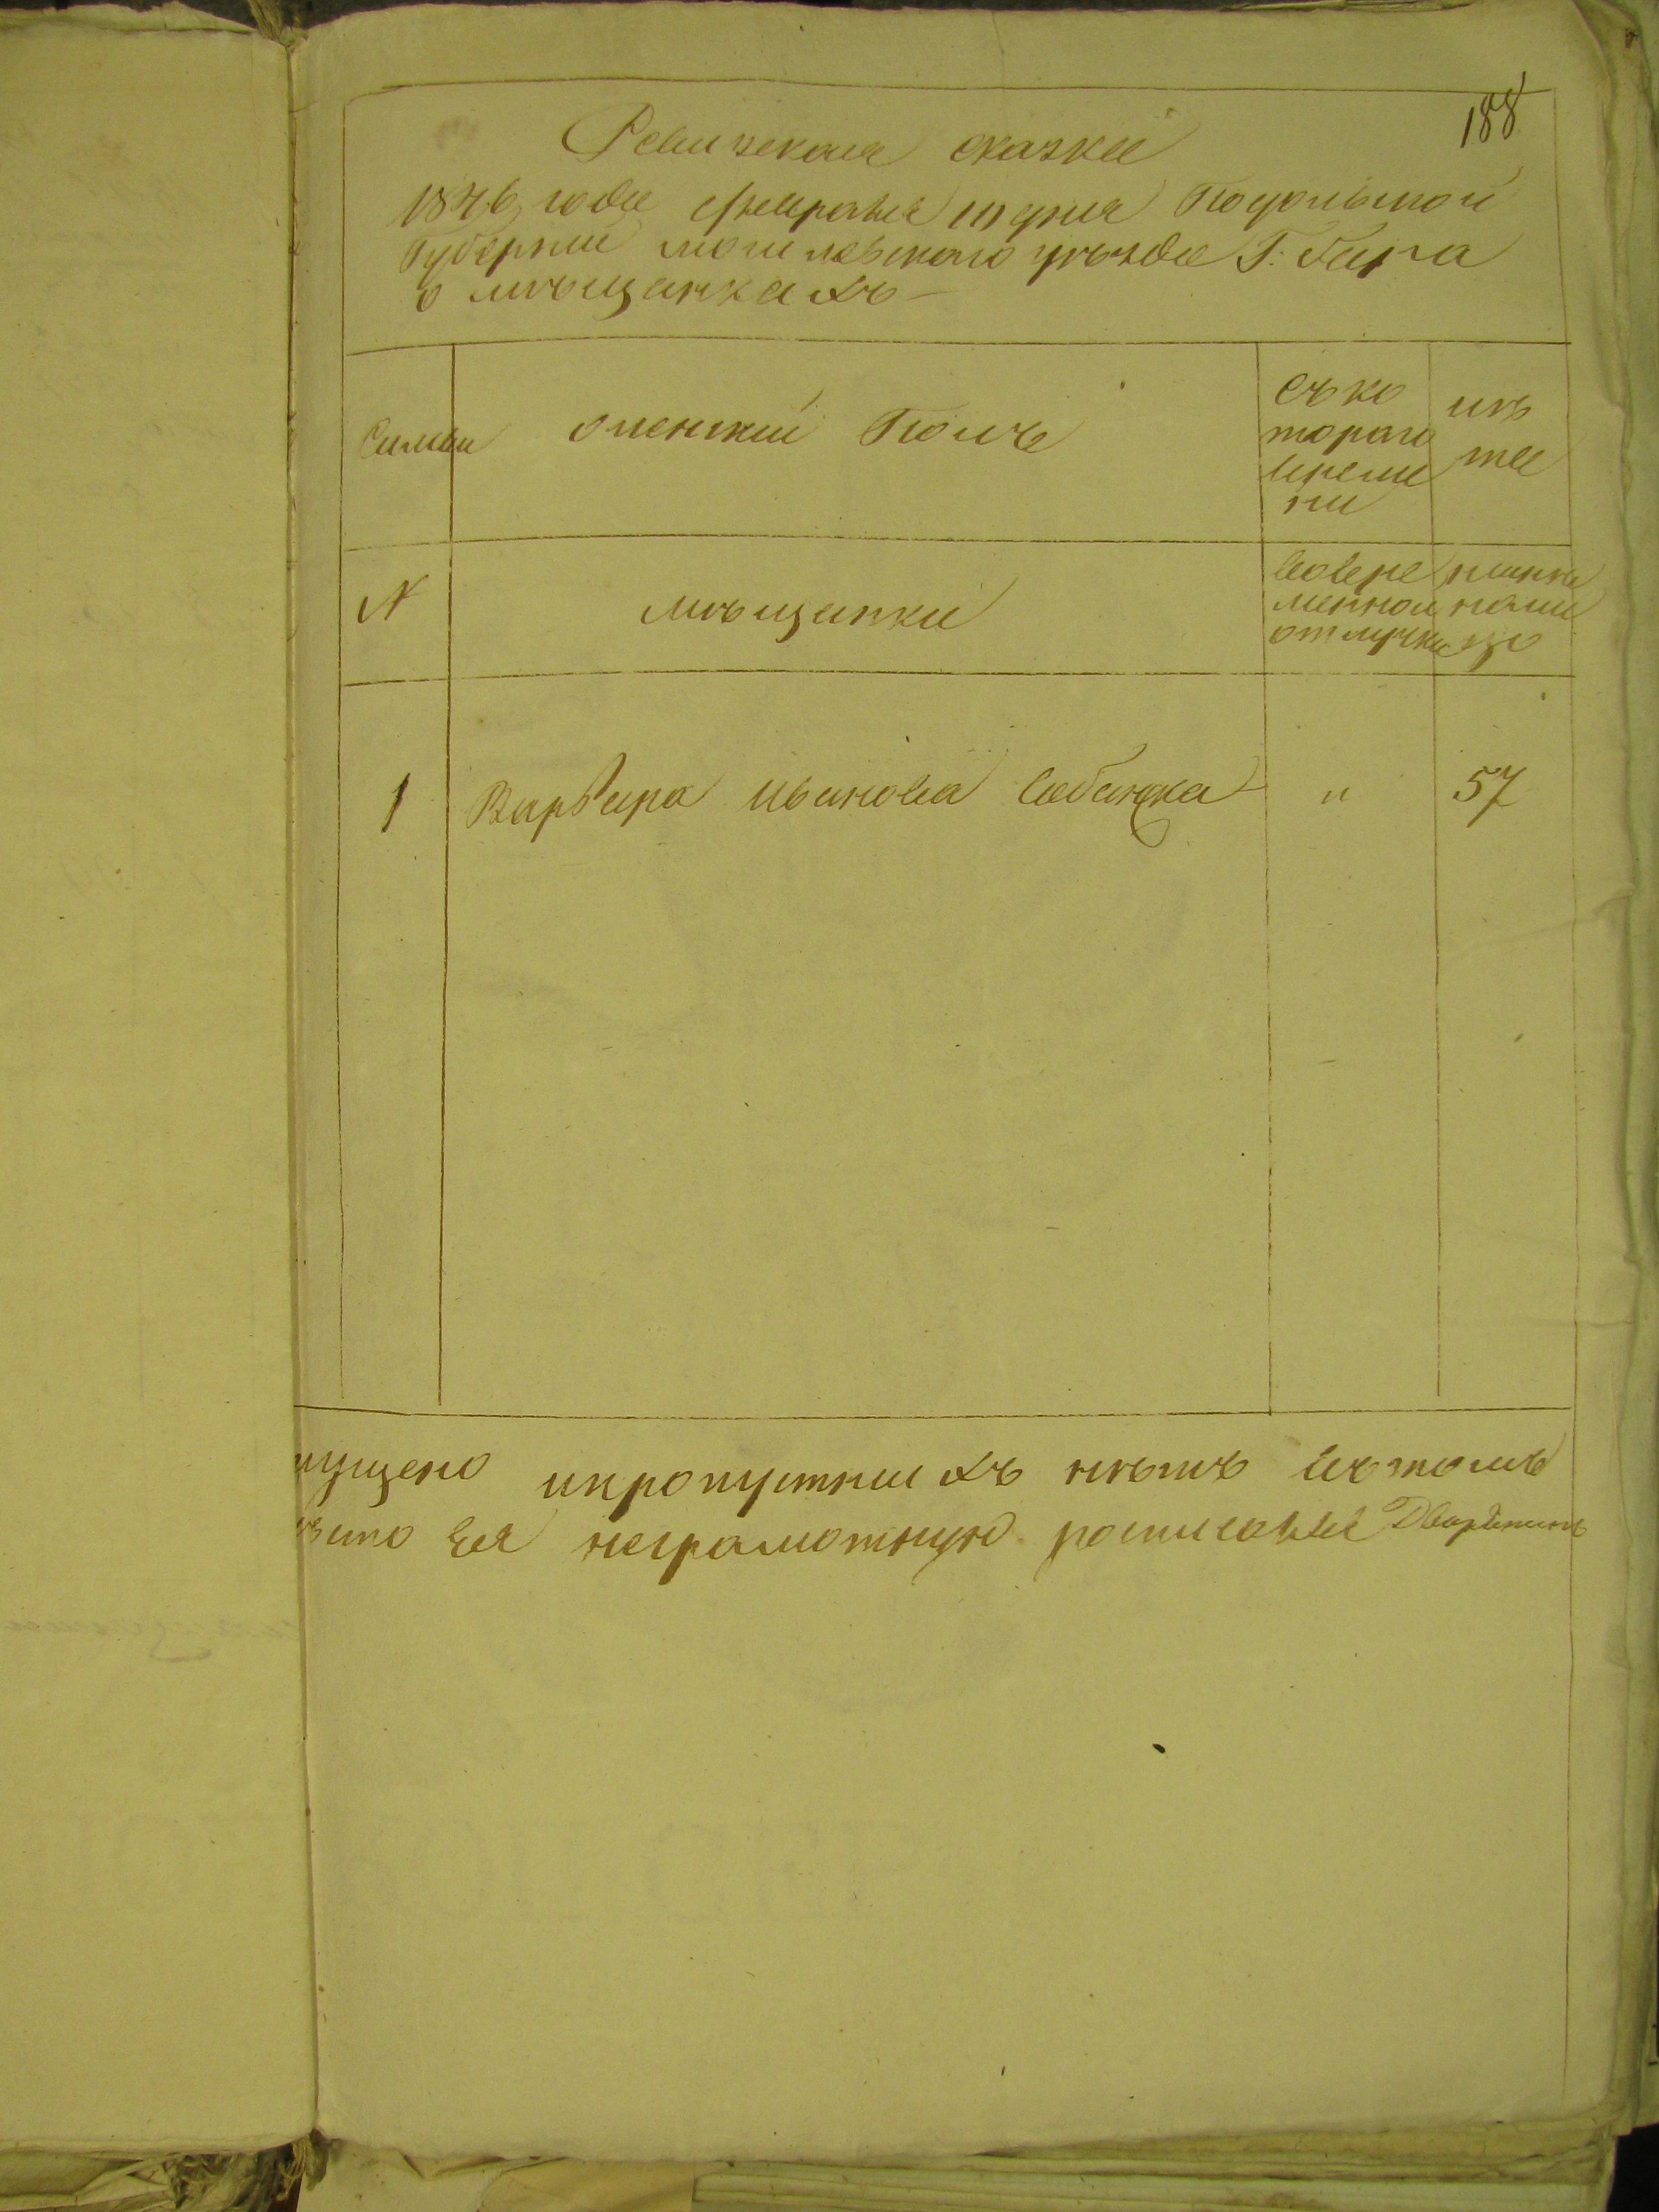 188
Ревизская сказка
1816 года февраля дня Подольской
Губернии могилевского уѣзда Г: Бара
о мѣщанкахъ
Семьи
оженский Полъ
Съ ко
тораго
времe
ни
лѣ
та
N
мѣщанки
вовре
менной
отлучки
нынѣ
нали
цо
1
Варвара иванова
"
57
пущено ипропустныхъ нѣтъ вътомъ
зато Ея неграмотную росписался Дворянинъ